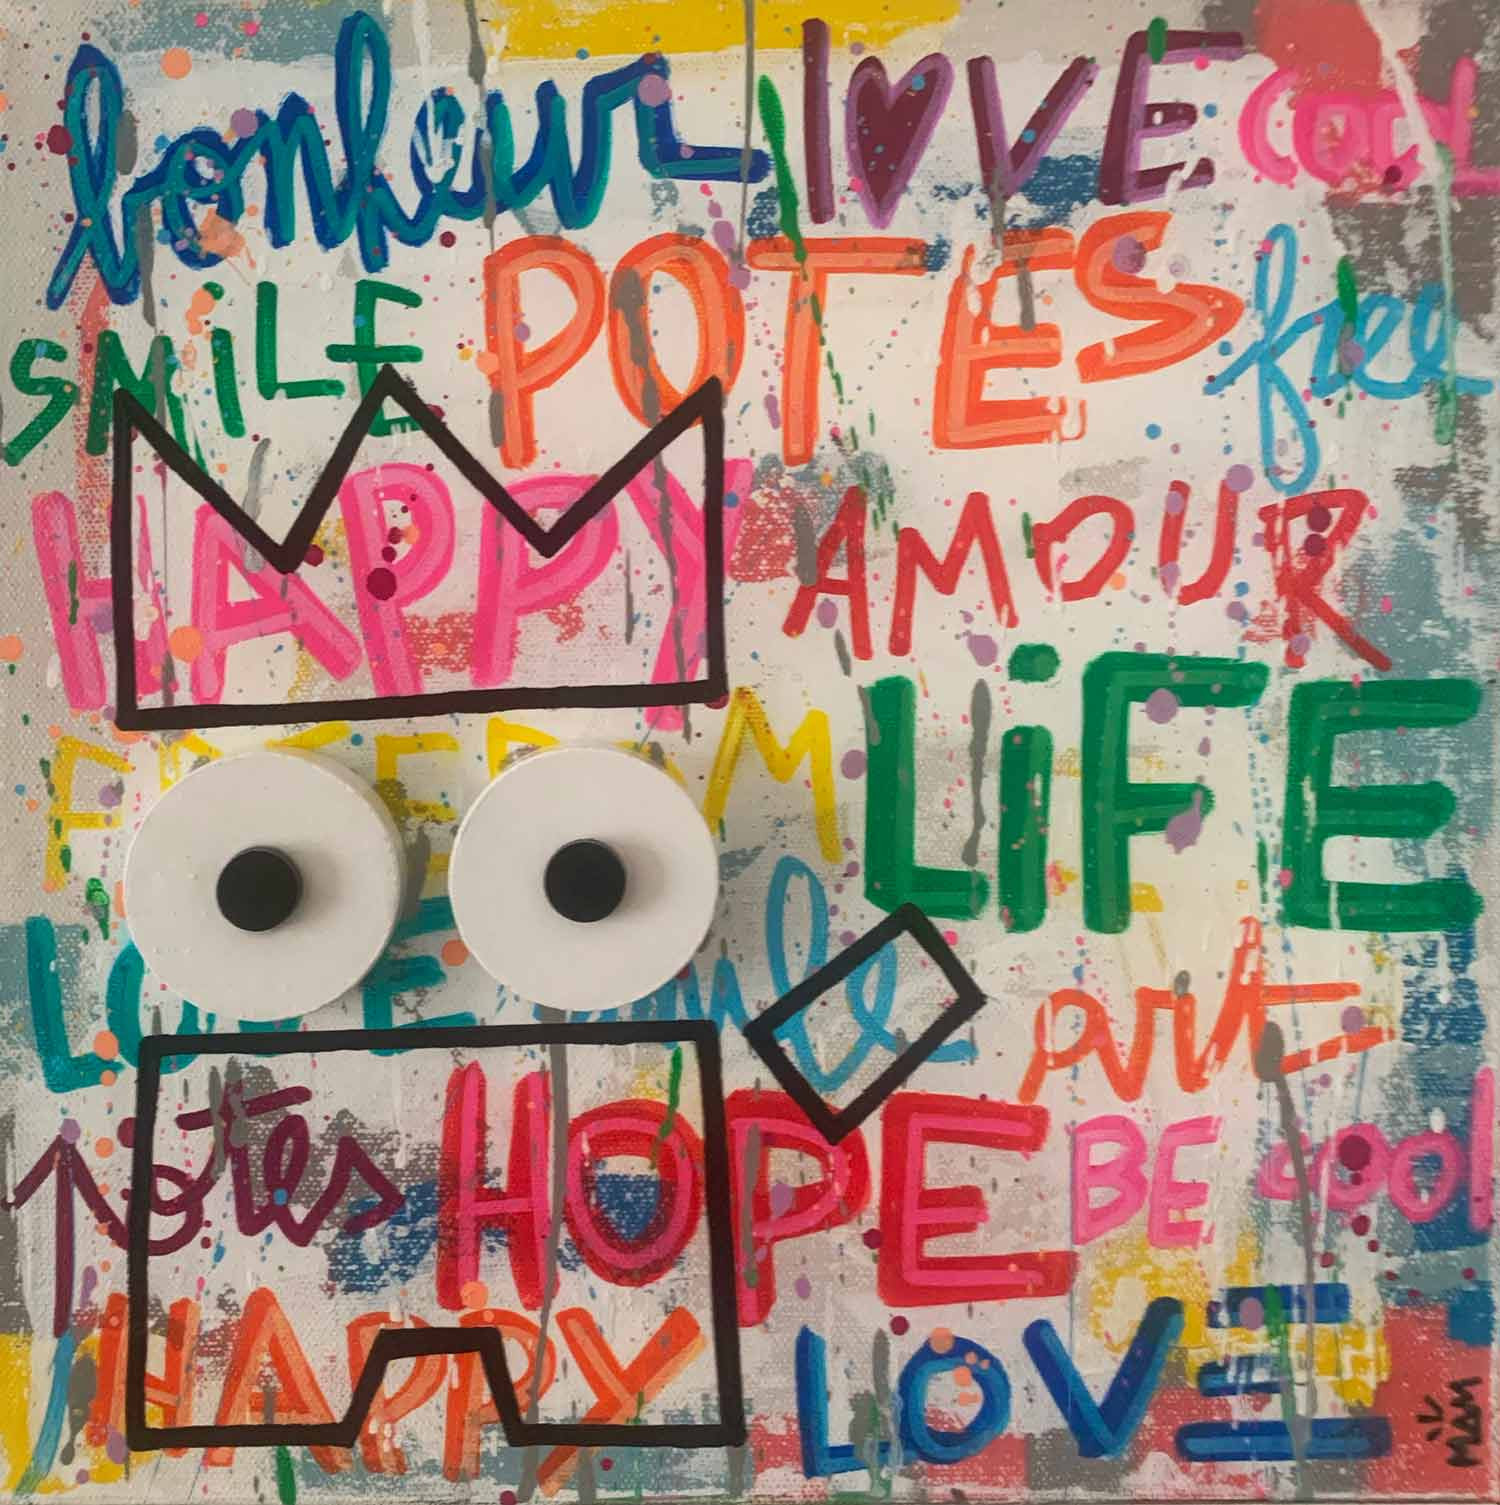 bonheur love cool
SMiLE POTES free
HAPPY AMOUR
FREEDOM LiFE
LOVE smile art
potes HOPE BE cool
HAPPY LOVE
MAM